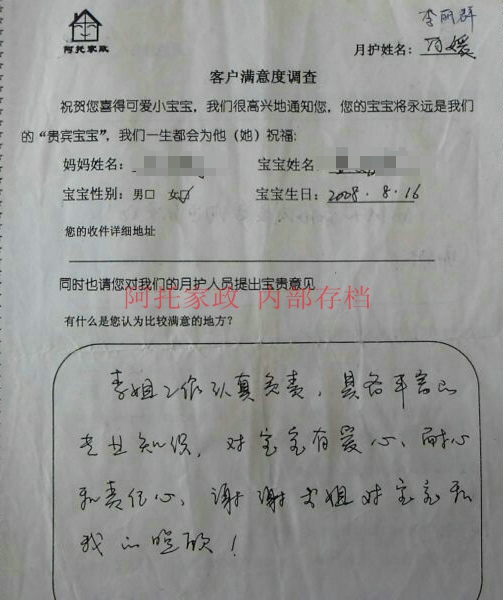 李丽群
阿托家政
月护姓名：
客户满意度调查
祝贺您喜得可爱小宝宝，我们很高兴地通知您，您的宝宝将永远是我们
的“贵宾宝宝”，我们一生都会为他（她）祝福:
妈妈姓名： 宝宝姓名
宝宝性别：男口 女口 宝宝生日：2008.8.16
您的收件详细地址
同时也请您对我们的月护人员提出宝贵意见
阿托家政 内部存档
有什么是您认为比较满意的地方？
李姐工作认真负责，具备丰富的
专业知识，对宝宝有爱心、耐心
和责任心，谢谢李姐对宝宝和
我的照顾！